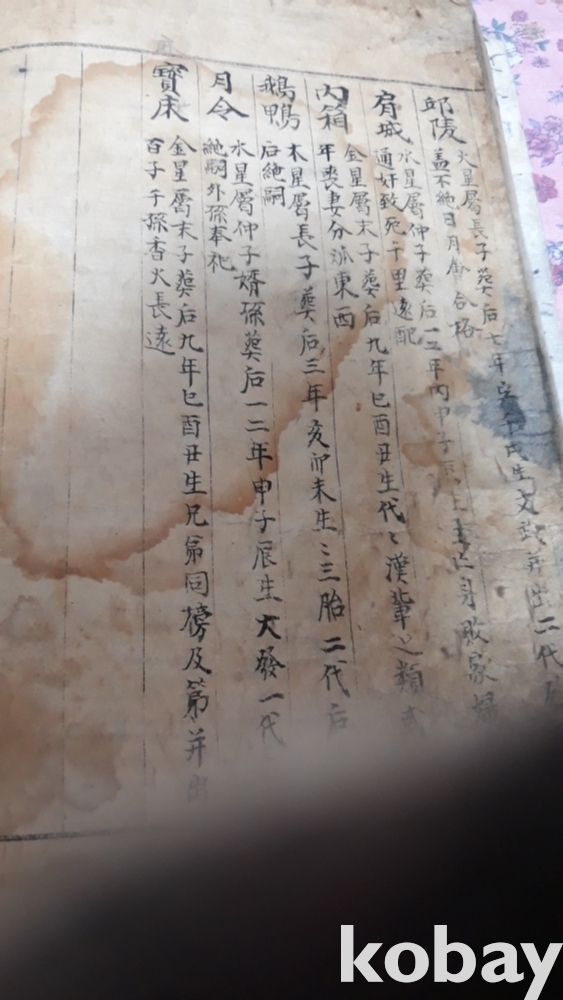 邱陵 火星屬長子葬后七年寅午戌生文武并出二代
蓋不絶日月食合格
肩城 水星屬仲子葬后一二年內申子辰生 亡身敗家婦
通奸致死千里遠配
內箱 金星屬末子葬后九年巳酉丑生代〻漢輩之類
年喪妻分派東西
鵝鴨 木星屬長子葬后三年亥卯未生〻三胎二代后
后絶嗣
月令 水星屬仲子婿孫葬后一二年申子辰生大發一代
絶嗣外孫奉祀
寶床 金星屬末子葬后九年巳酉丑生兄弟同榜及第并出
百子千孫香火長遠
kobay